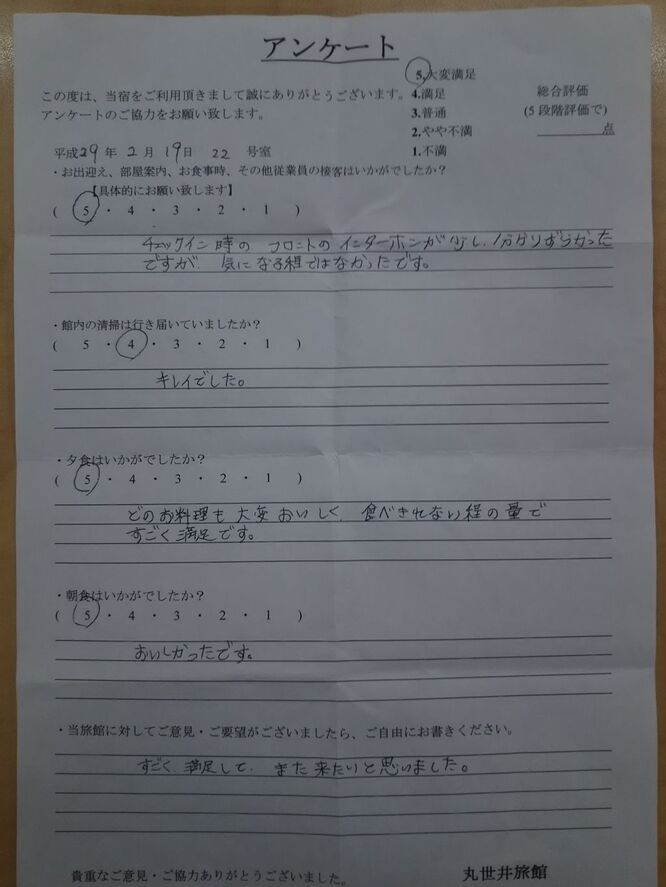 アンケート
5.大変満足
この度は、当宿をご利用頂きまして誠にありがとうございます。 4.満足 総合評価
アンケートのご協力をお願い致します。 3.普通 (5段階評価で)
2.やや不満 点
平成29年2月19日 22 号室 1.不満
・お出迎え、部屋案内、お食事時、その他従業員の接客はいかがでしたか？
【具体的にお願い致します】
( 5 ・ 4 ・ 3 ・ 2 ・ 1 )
チェックイン時の フロントの インターホンが少し、分かりずらかった
ですが、気になる程ではなかったです。
・館内の清掃は行き届いていましたか？
( 5 ・ 4 ・ 3 ・ 2 ・ 1 )
キレイでした。
・夕食はいかがでしたか？
( 5 ・ 4 ・ 3 ・ 2 ・ 1 )
どのお料理も 大変 おいしく、食べきれない程の量で
すごく満足です。
・朝食はいかがでしたか？
( 5 ・ 4 ・ 3 ・ 2 ・ 1 )
おいしかったです。
・当旅館に対してご意見・ご要望がございましたら、ご自由にお書きください。
すごく、満足して、また来たいと思いました。
貴重なご意見・ご協力ありがとうございました。 丸世井旅館